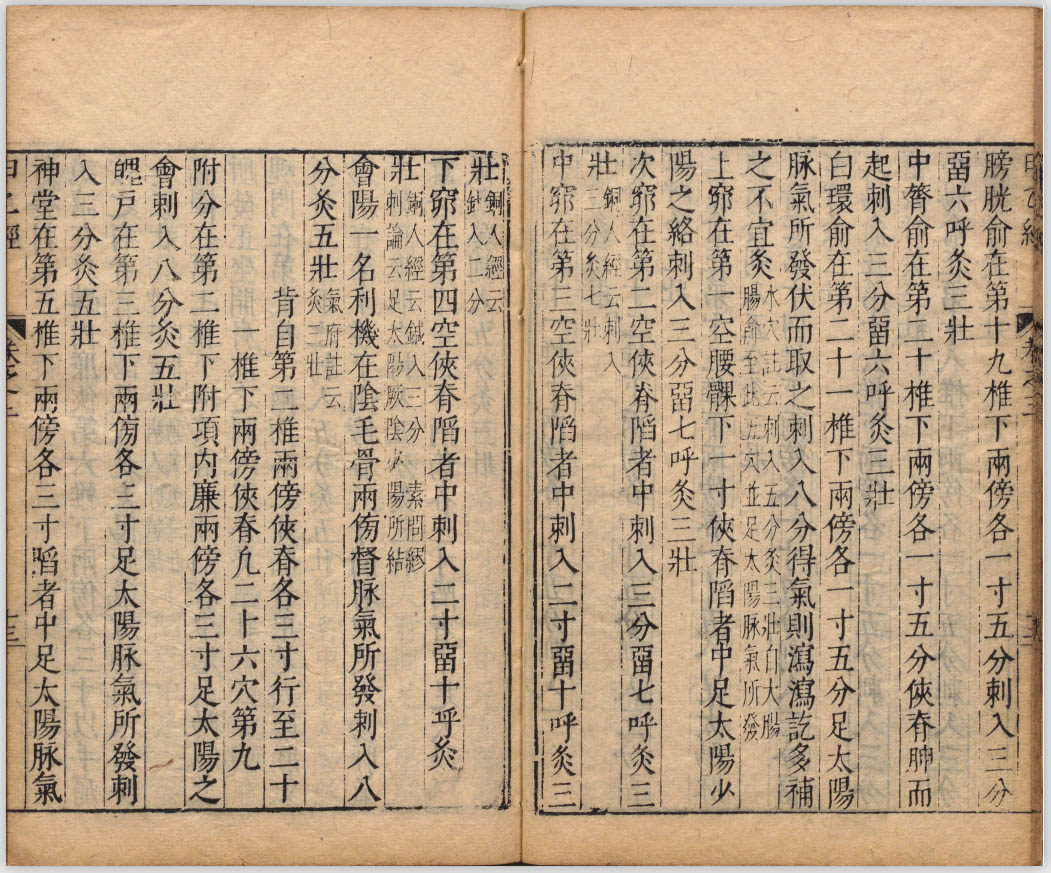 膀胱俞在第十九椎下兩傍各一寸五分刺入三分
畱六呼灸三壯
中膂俞在第二十椎下兩傍各一寸五分俠脊胂而
起刺入三分畱六呼灸三壯
白環俞在第二十一椎下兩傍各一寸五分足太陽
脉氣所發伏而取之刺入八分得氣則瀉瀉訖多補
之不宜灸水穴註云刺入五分灸三壯自大腸腸俞至此五穴並足太陽脉氣所發
上窌在第一空腰髁下一寸俠脊陷者中足太陽少
陽之絡刺入三分畱七呼灸三壯
次窌在第二空俠脊陷者中刺入三分畱七呼灸三
壯銅人經云刺入三分灸七壯
中窌在第三空俠脊陷者中刺入二寸畱十呼灸三
壯銅人經云針入二分
下窌在第四空俠脊陷者中刺入二寸畱十呼灸
壯銅人經云鍼入三分素問繆刺論云足太陽厥陰少陽所結
會陽一名利機在陰毛骨兩傍督脉氣所發刺入八
分灸五壯氣府註云灸壯
背自第二椎兩傍俠脊各三寸行至二十
一椎下兩傍俠脊凡二十六穴第九
附分在第二椎下附項內廉兩傍各三寸足太陽之
會刺入八分灸五壯
魄戸在第三椎下兩傍各三寸足太陽脉氣所發刺
入三分灸五壯
神堂在第五椎下兩傍各三寸陷者中足太陽脉氣
甲乙經
卷之三